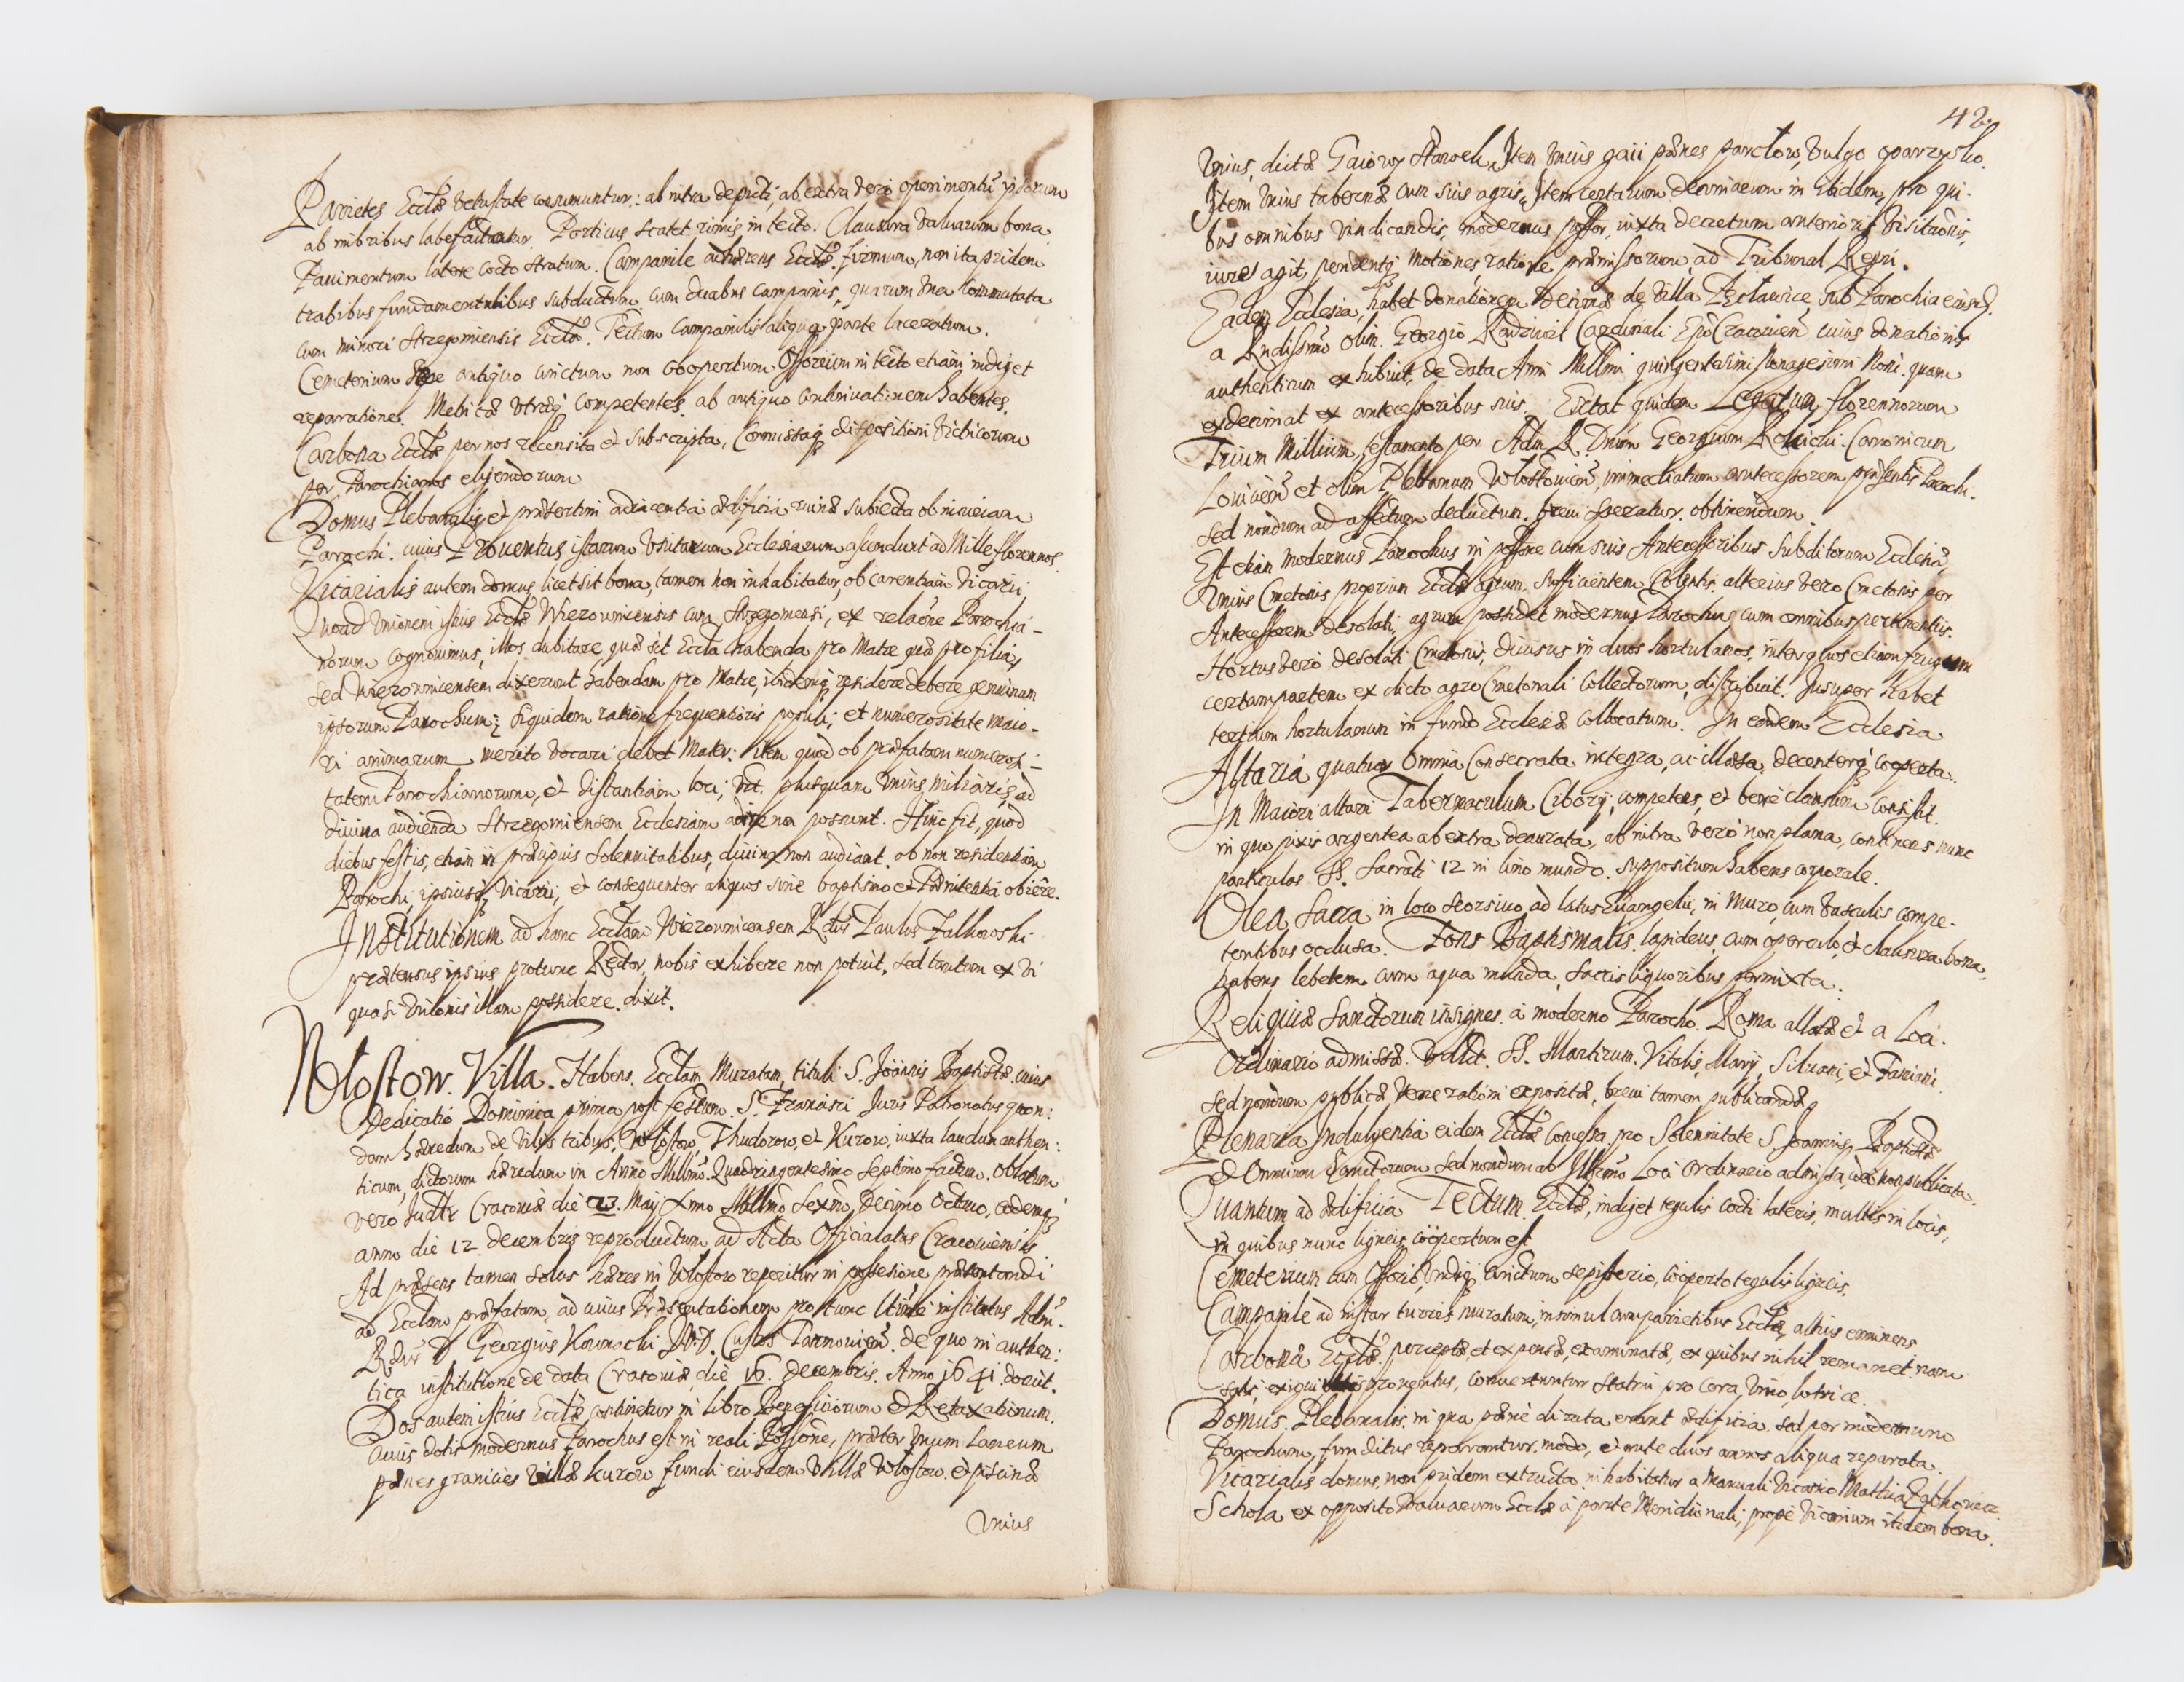 Parietes Eccłæ vetustate consumuntur: ab intra depicti, ab extra vero operimentũ ipsorum
ab imbribus labefactatur. Porticus scatet rimis in tecto. Clausura valvarum bona
Pavimentum latere cocto stratum. Campanile adhærens Eccłæ firmum, non ita pridem
trabibus fundamentalibus subductum cum duabus campanis, quarum una commutata
cum minori Strzegomiensis Eccłæ. Tectum Campanilis aliqua parte laceratum.
Cemeterium sepe antiquo cinctum non coopertum Ossorium in tecto etiam indiget
reparatione. Metricæ utræq competentes ab antiquo continuationem habentes.
Carbona Eccłæ per nos recensita et subscripta, Commissaq dispositioni Vitricorum
per Parochianos eligendorum
Domus Plebanalis et præsertim adiacentia ædificia ruinæ subiecta ob incuriam
Parochi. cuius Proventus istarum Unitarum Ecclesiarum ascendunt ad Mille florennos
Vicarialis autem domus, licet sit bona, tamen non inhabitatur, ob carentiam Vicarii,
Quoad Unionem istius Eccłæ Wiązownicensis cum Strzegomiensi, ex relaõne Parochia-
norum cognovimus, illos dubitare quæ sit Eccła habenda pro Matre quæ pro filia,
sed Wiązownicensem dixerunt habendam pro Matre, ibidemq residere debere genuinum
ipsorum Parochum; siquidem ratione frequentioris populi; et numerositate maio-
ri animarum merito vocari debet Mater: Item quod ob præfatam numerosi-
tatem Parochianorum, et distantiam loci, vdt. plusquam unius miliaris, ad
divina audienda Strzegomiensem Ecclesiam adire non possunt. Hinc fit, quod
diebus festis, etiam in præcipuis solennitatibus, divina non audiant. ob non residentiam
Parochi, ipsiusq Vicarii, et consequenter aliquos sine baptismo et Pœnitentia obiere.
Institutionem ad hanc Eccłam Wiązownicensem Rdus Paulus Zalkowski
prætensus ipsius protunc Rector, nobis exhibere non potuit, sed tantum ex vi
quasi Unionis illam possidere dixit.
Włostow. Villa. Habens. Eccłam Muratam, tituli S. Joannis Baptistæ cuius
Dedicatio Dominica prima post festum S. Francisci Juris Patronatus quon:
dam hæredum de Villis tribus, Włostow, Thudorow, et Kurow, iuxta laudum authen:
ticum, dictorum hæredum in Anno Millmo Quadringentesimo Septimo factum. Oblatum
vero Judtr Cracoviæ die 23. Maij Anno Millmo Sexno, Decimo Octavo, eodemq
anno die 12 decembris reproductum, ad Acta Officialatus Cracoviensis.
Ad præsens tamen solus hæres in Włostow reperitur in possesione præsentandi
ad Eccłam præfatam, ad cuius Præsentationem pro tunc Ultime institutus Adm.
Rdus D Georgius Kownacki J.V.D. Custos Tarnovien. de quo in authen:
tica institutione de data Cracoviæ die 16. decembris. Anno 1641. docuit.
Dos autem istius Eccłæ continetur in libro Beneficiorum et Retaxationum.
cuius dotis modernus Parochus est in reali Possone, præter unum Laneum
pœnes granicies Villæ Kurow fundi eiusdem Villæ Włostow. et piscinæ
Unius
42.
Unius, dictæ Gaiowy Stawek, Item Unius gaii pœnes parctow, vulgo oparzysko.
Item Unius tabernæ cum suis agris, Item certarum decimarum in ibidem, pro qui-
bus omnibus vindicandis, modernus possor, iuxta decretum anterioris Visitaõris,
iure agit, pendentq motiones ratione præmissorum ad Tribunal Regni.
Eadem Ecclesia, habet donationem Decimæ de Villa Pęcławice, sub Parochia eiusd.
a Rndissimo olim. Georgio Radziwil Cardinali Epo Cracovien cuius donationis
authenticum exhibuit, de data Anni Millmi quingentesimi Nonagesimi Noni. quam
exdecimat ex antecessoribus suis. Extat quidem Legatum florennorum
Trium Millium, testamento per Adm R. Dnum Georgium Canonicum
Lovicien et olim Plebanum Włostovien, immediatum antecessorem præsentis Parochi.
sed nondum ad effectum deductum. brevi speratur obtinendum.
Est etiam modernus Parochus in possone cum suis Antecessoribus Subditorum Ecclesiæ
Unius Cmetonis proprium Eccłæ agrum sufficientem Colentis. alterius vero Cmetonis per
Antecessorem desolati, agrum possidet modernus Parochus cum omnibus pertinentiis.
Hortus vero desolati Cmetonis, divisus in duos hortulanos, inter quos etiam frugum
certam partem ex dicto agro Cmetonali Collectorum, distribuit. Insuper habet
tertium hortulanum in fundo Ecclesiæ collocatum. In eadem Ecclesia
Altaria quatuor Omnia Consecrata integra, ac illæsa, decenterq cooperta.
In Maiori altari Tabernaculum Ciborij, competens, et bene clausum consistit.
in quo pixis argentea ab extra deaurata, ab intra vero non plana, continens nunc
particulas SS. Sacrati 12 in lino mundo. suppositum habens corporale.
Olea Sacra in loco seorsivo, ad latus Evangelii, in Muro, cum vasculis compe-
tentibus occlusa. Fons Baptismalis. lapideus, cum operculo, et clausura bona,
habens lebetem cum aqua munda, sacris liquoribus permixta.
Reliquiæ Sanctorum insignes. a moderno Parocho. Roma allatæ et a Loci.
Ordinario admissæ. Vdlict. SS. Martirum. Vitalis, Marij, Silvani, et Fausiani.
sed nondum publicæ venerationi expositæ, brevi tamen publicandæ
Plenaria Indulgentia eidem Eccłæ Concessa pro Solennitate S Joannis Baptistæ
et Omnium Sanctorum sed nondum ab Illmo Loci Ordinario admissa, ideo non publicata.
Quantum ad ædificia Tectum. Eccłæ, indiget tegulis cocti lateris, multis in locis,
in quibus nunc ligneis coopertum est
Cemeterium cum Ossorio, undiq cinctum sepisterio, cooperto tegulis ligneis.
Campanile ad instar turris muratum, insimul cum parietibus Eccłæ, altius eminens
Carbona Eccłæ. perceptæ, et expensæ, examinatæ, ex quibus nihil remanet, nam
satis exigui proventus, convertuntur statim pro cera, vino, lotrice.
Domus. Plebanalis. in qua pœne diruta erant ædificia. sed per modernum
Parochum, funditus reparantur. modo, et ante duos annos aliqua reparata.
Vicarialis domus, non pridem extructa. inhabitatur a Manuali Vicario Mathia
Schola ex opposito Valvarum Eccłæ a parte Meridionali, prope Vicarium itidem bona.